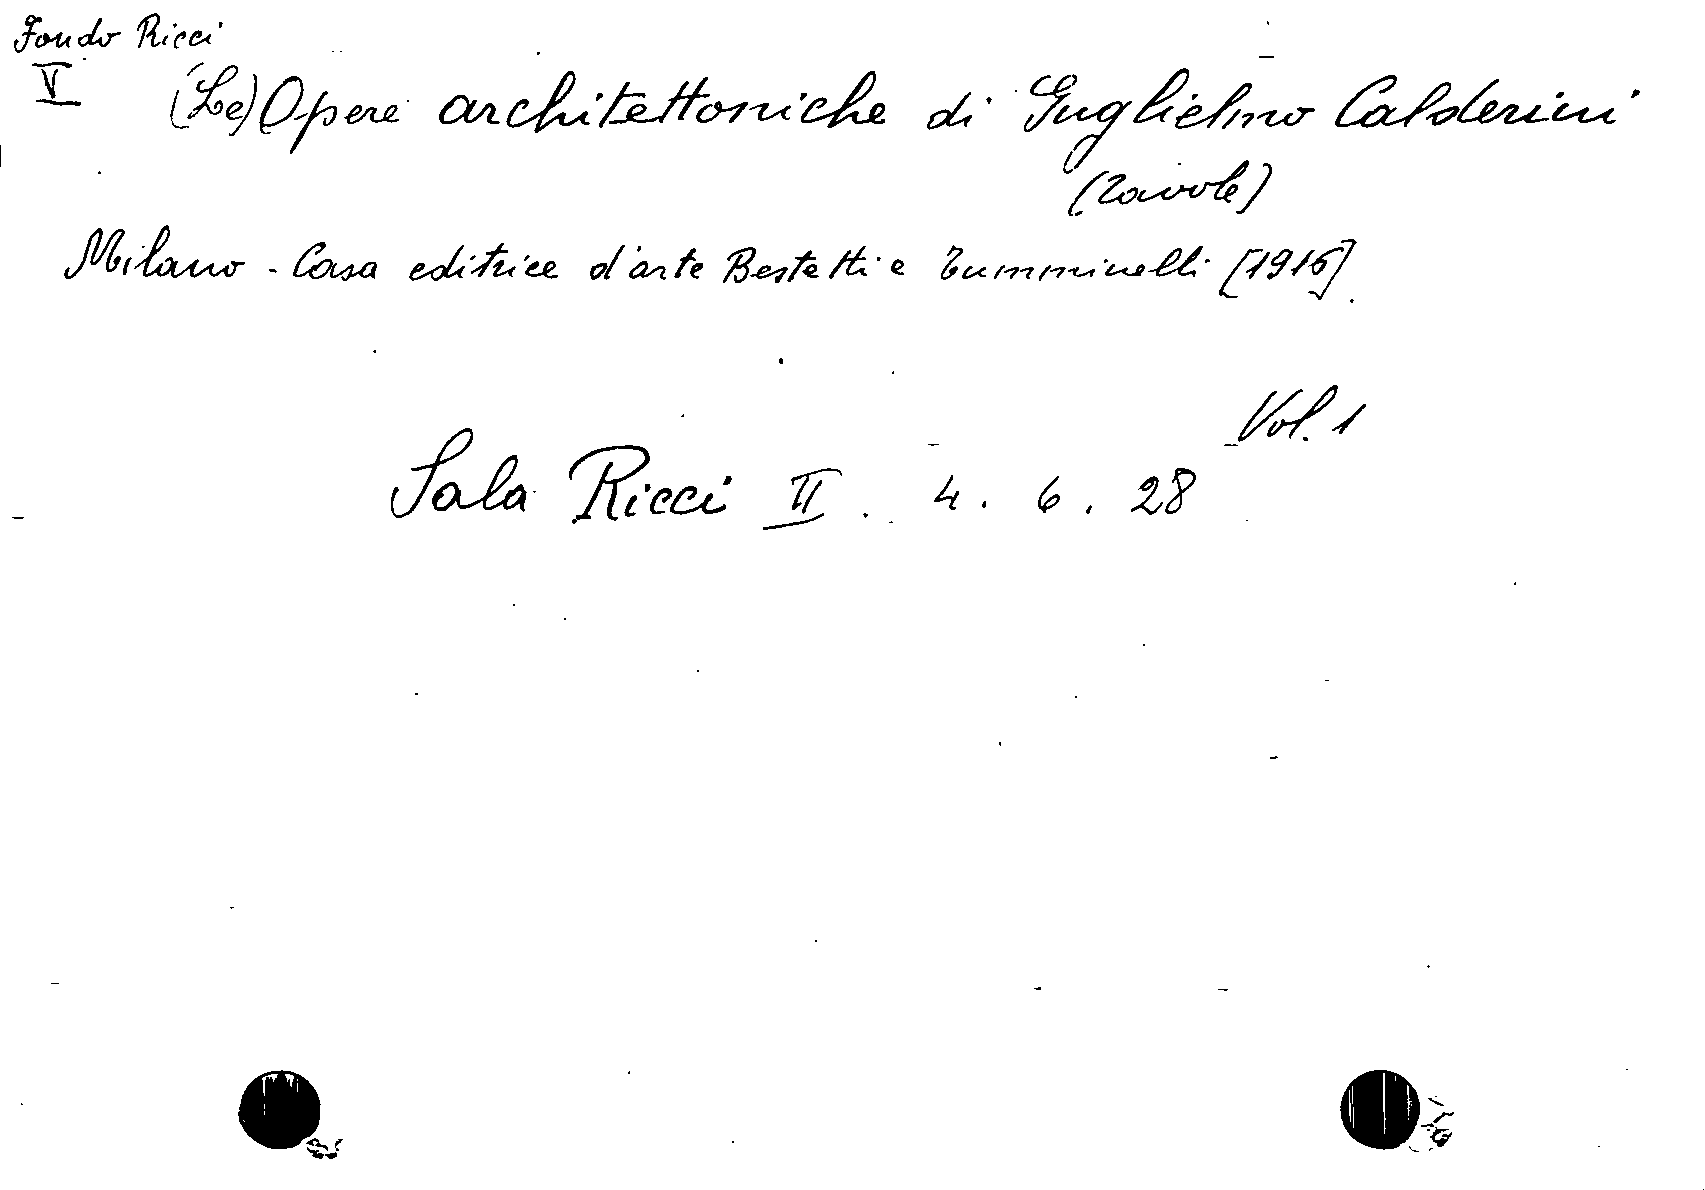 Fondo Ricci
V
(Le) Opere architettoniche di Guglielmo Calderini
(Tavole)
Milano - Casa editrice d'arte Bestetti e Tumminelli [1916].
Vol. 1
Sala Ricci II. 4. 6. 28